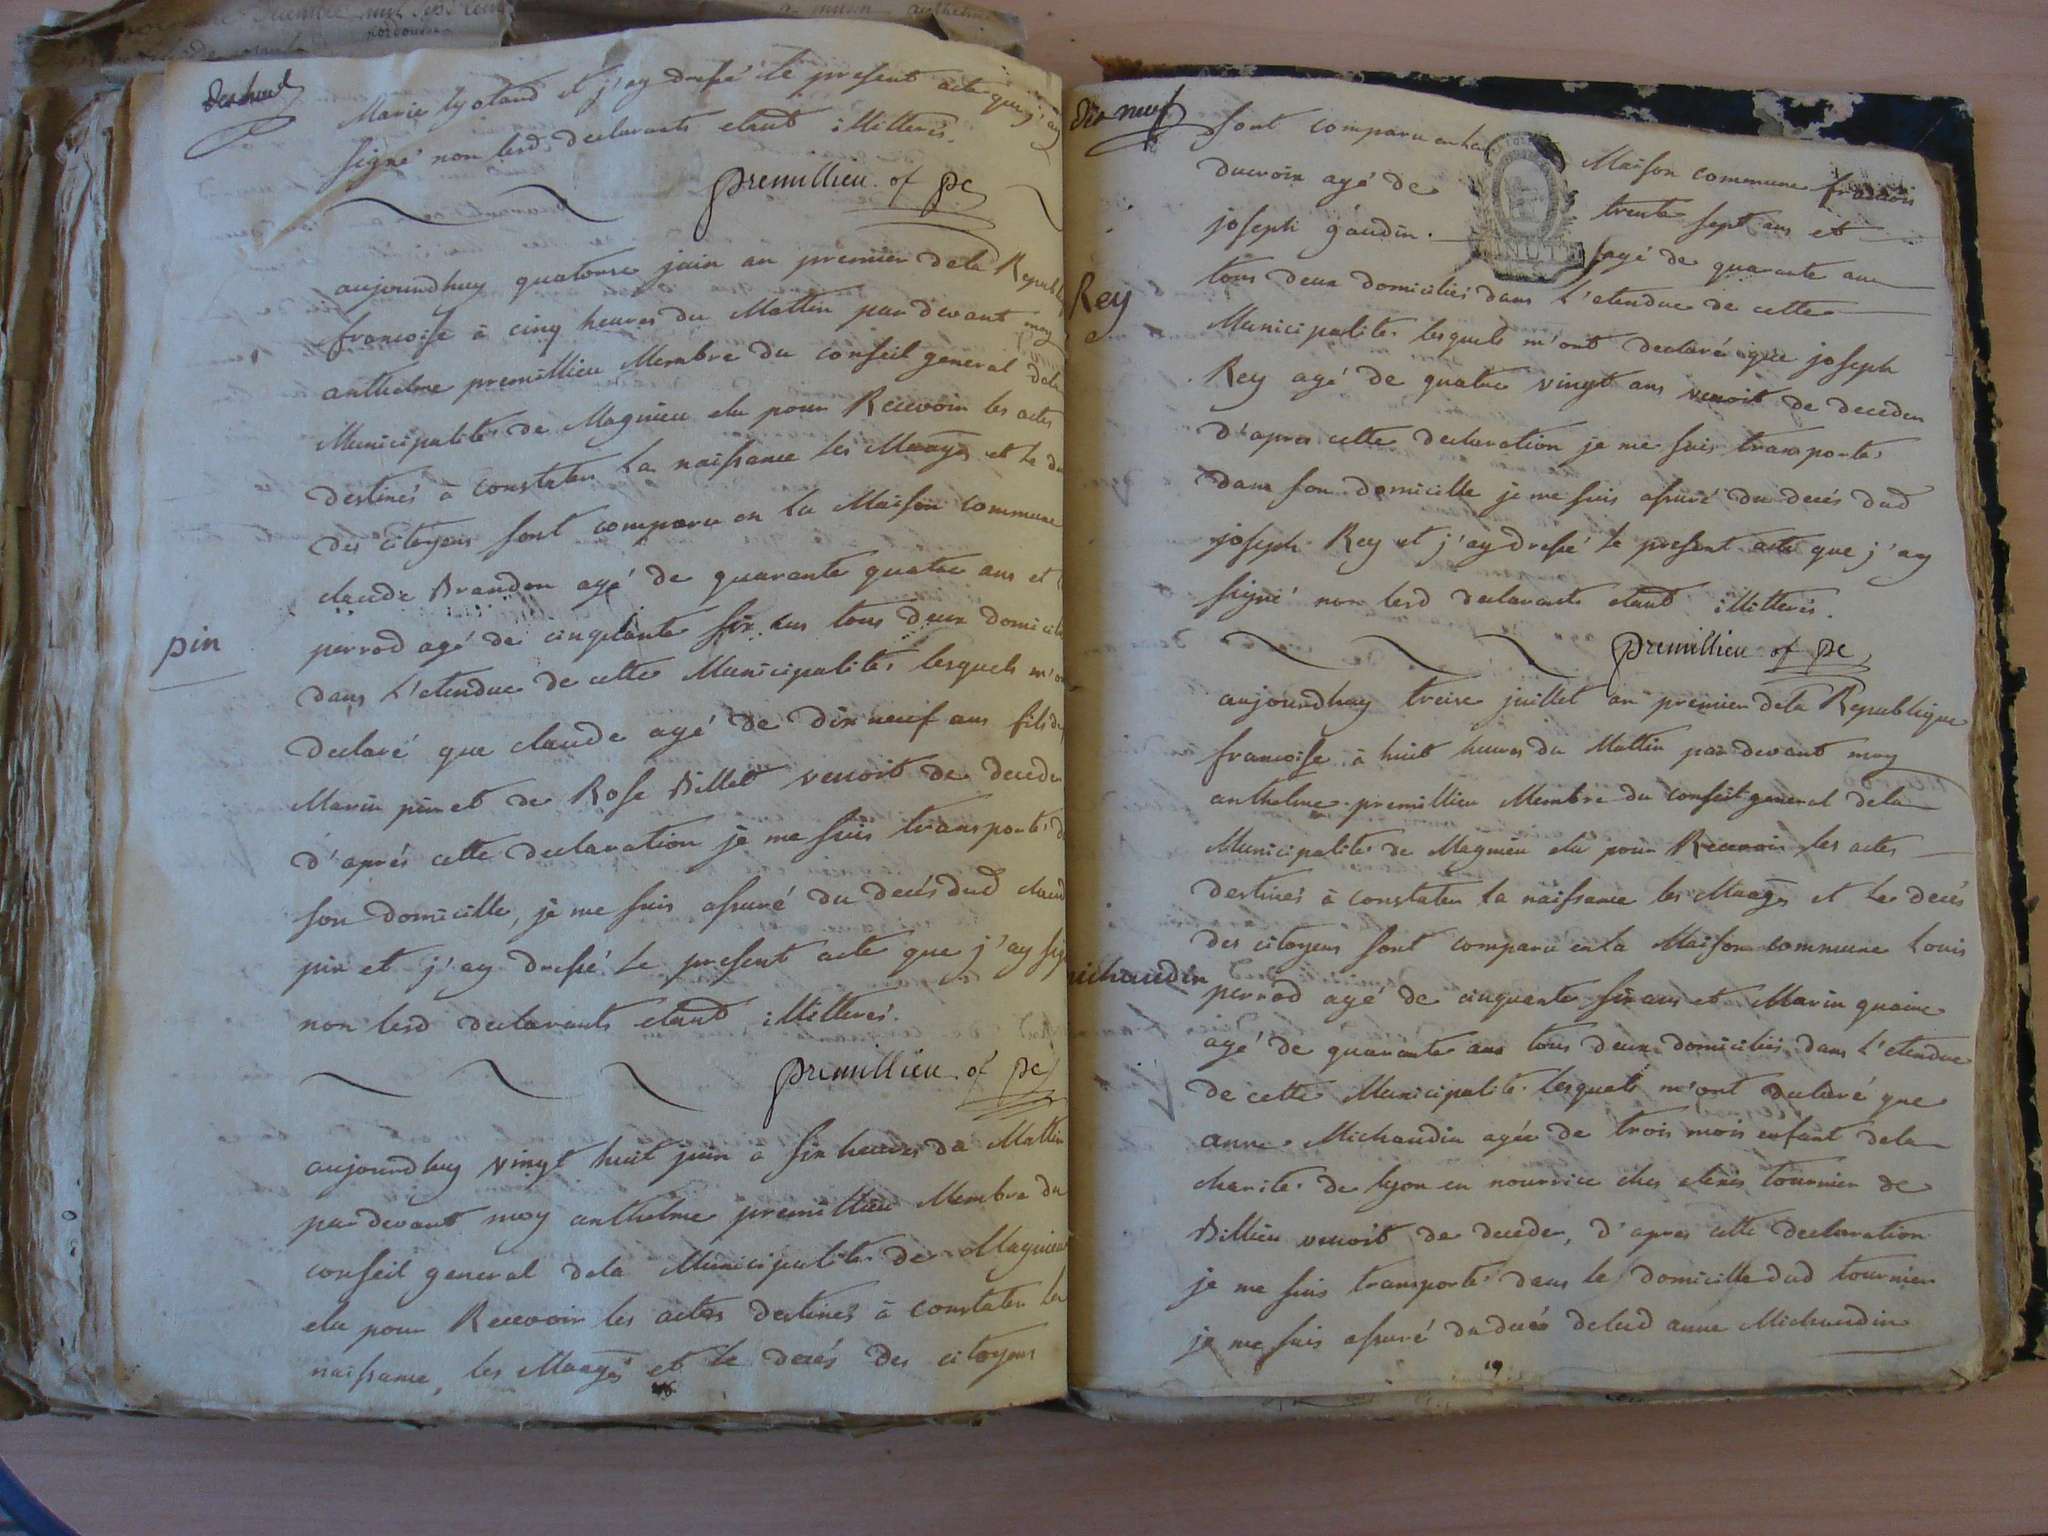 dix huit
Marie et j'ay dressé le present acte que j'ay
signé non lesd declarants etant illitterés.
premillieu of pc
aujourdhuy quatorse juin an premier dela Republ
francoise à cinq heures du Mattin par devant moy
anthelme premillieu Membre du conseil general dela
Municipalité de Magnieu elu pour Recevoir les actes
destinés à constater la naissance les Maages et le de
des citoyens sont comparu en la Maison commune
claude Brandon agé de quarante quatre ans et
perrod agé de cinquante six ans tous deux domicil
pin
dans l'etendue de cette Municipalité lesquels m'o
declaré que claude agé de dix neuf ans fils de
Marin pin et de Rose Billet venoit de deceder
d'aprés cette declaration je me suis transporté d
son domicille, je me suis assuré du decés dud claud
pin et j'ay dressé le present acte que j'ay sig
non lesd declarants etant illitterés.
premillieu of pc
aujourdhuy vingt huit juin a six heures du Mattin
par devant moy anthelme premillieu Membre du
conseil general dela Municipalité de Magnieu
elu pour Recevoir les actes destinés à constater la
naissance, les Maages et le decés des citoyens
dix neuf
sont comparu en la Maison commune francois
ducroix agé de trente sept ans et
joseph gaudin agé de quarante ans
Rey
tous deux domiciliés dans l'etendue de cette
Municipalité lesquels m'ont declaré que joseph
Rey agé de quatre vingt ans venoit de deceder
d'apres cette declaration je me suis transporté
dans son domicille je me suis assuré du decés dud
joseph Rey et j'ay dressé le present acte que j'ay
signé non lesd declarants etant illitterés.
premillieu of pc
aujourdhuy treise juillet an premier dela Republique
francoise à huit heures du Mattin par devant moy
anthelme premillieu Membre du conseil general dela
Municipalité de Magnieu elu pour Recevoir les actes
destinés à constater la naissance les Maages et le decés
des citoyens sont comparu en la Maison commune Louis
michaudin
perrod agé de cinquante six ans et Marin quaine
agé de quarante ans tous deux domiciliés dans l'etendue
de cette Municipalité lesquels m'ont declaré que
anne Michaudin agée de trois mois enfant dela
charité de lyon en nourrice ches tournier de
Billieu venoit de deceder, d'apres cette declaration
je me suis transporté dans le domicille dud tournier
je me suis assuré du decés delad anne Michaudin
19